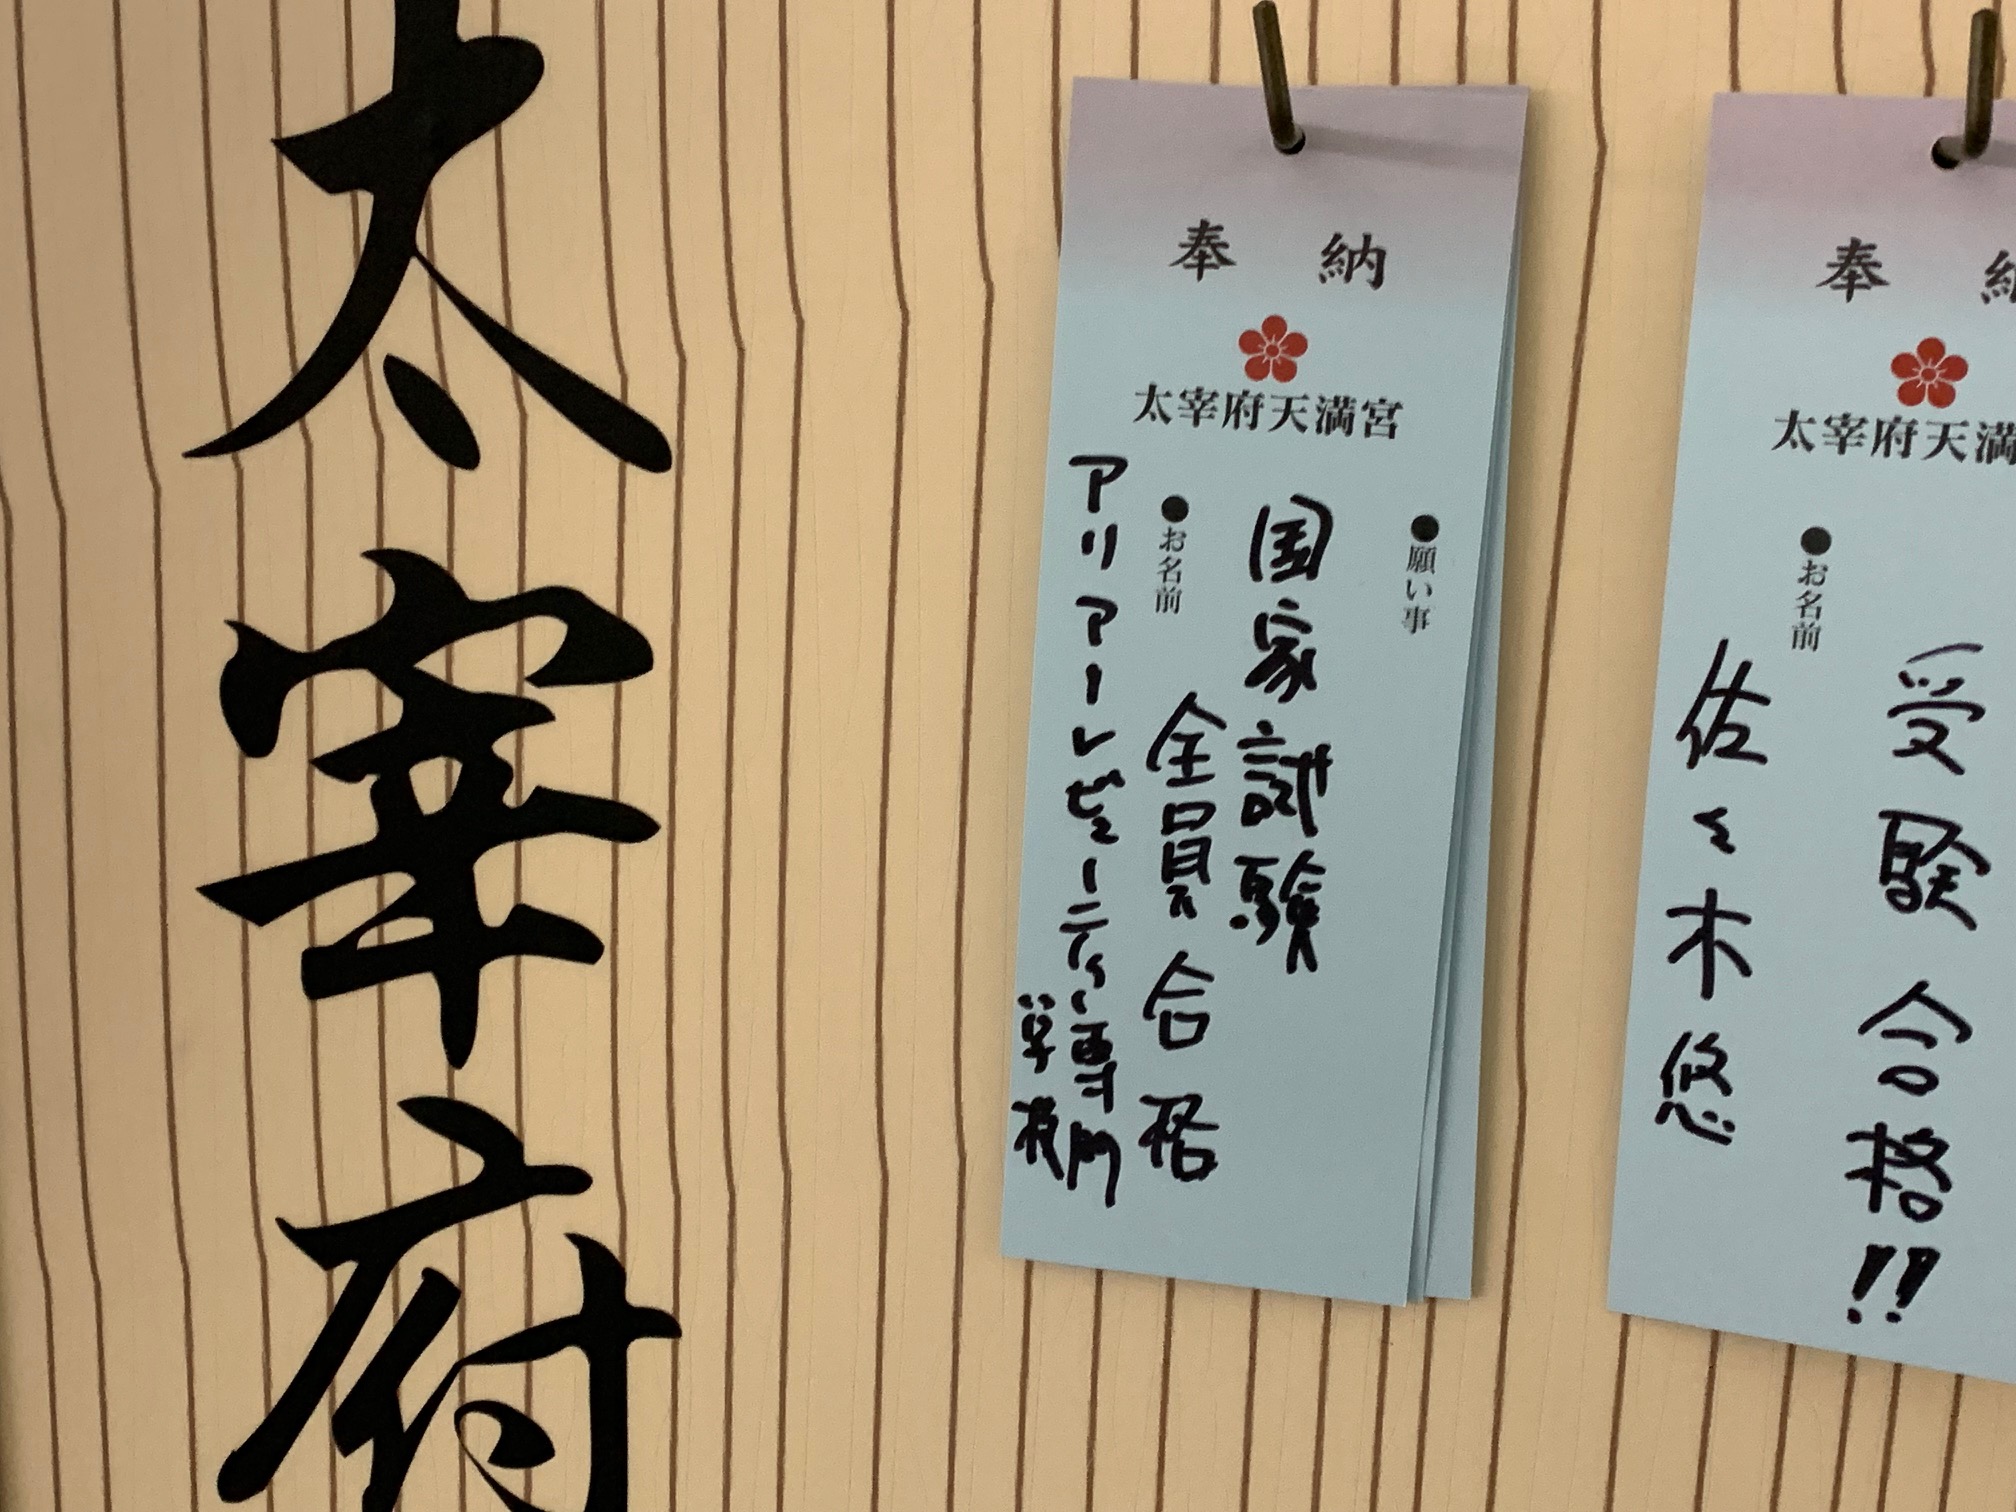 太宰府
奉納
太宰府天満宮
●願い事
国家試験
全員合格
●お名前
アリアーレビューティー専門
学校
奉納
太宰府天満
受験合格!!
●お名前
佐々木悠